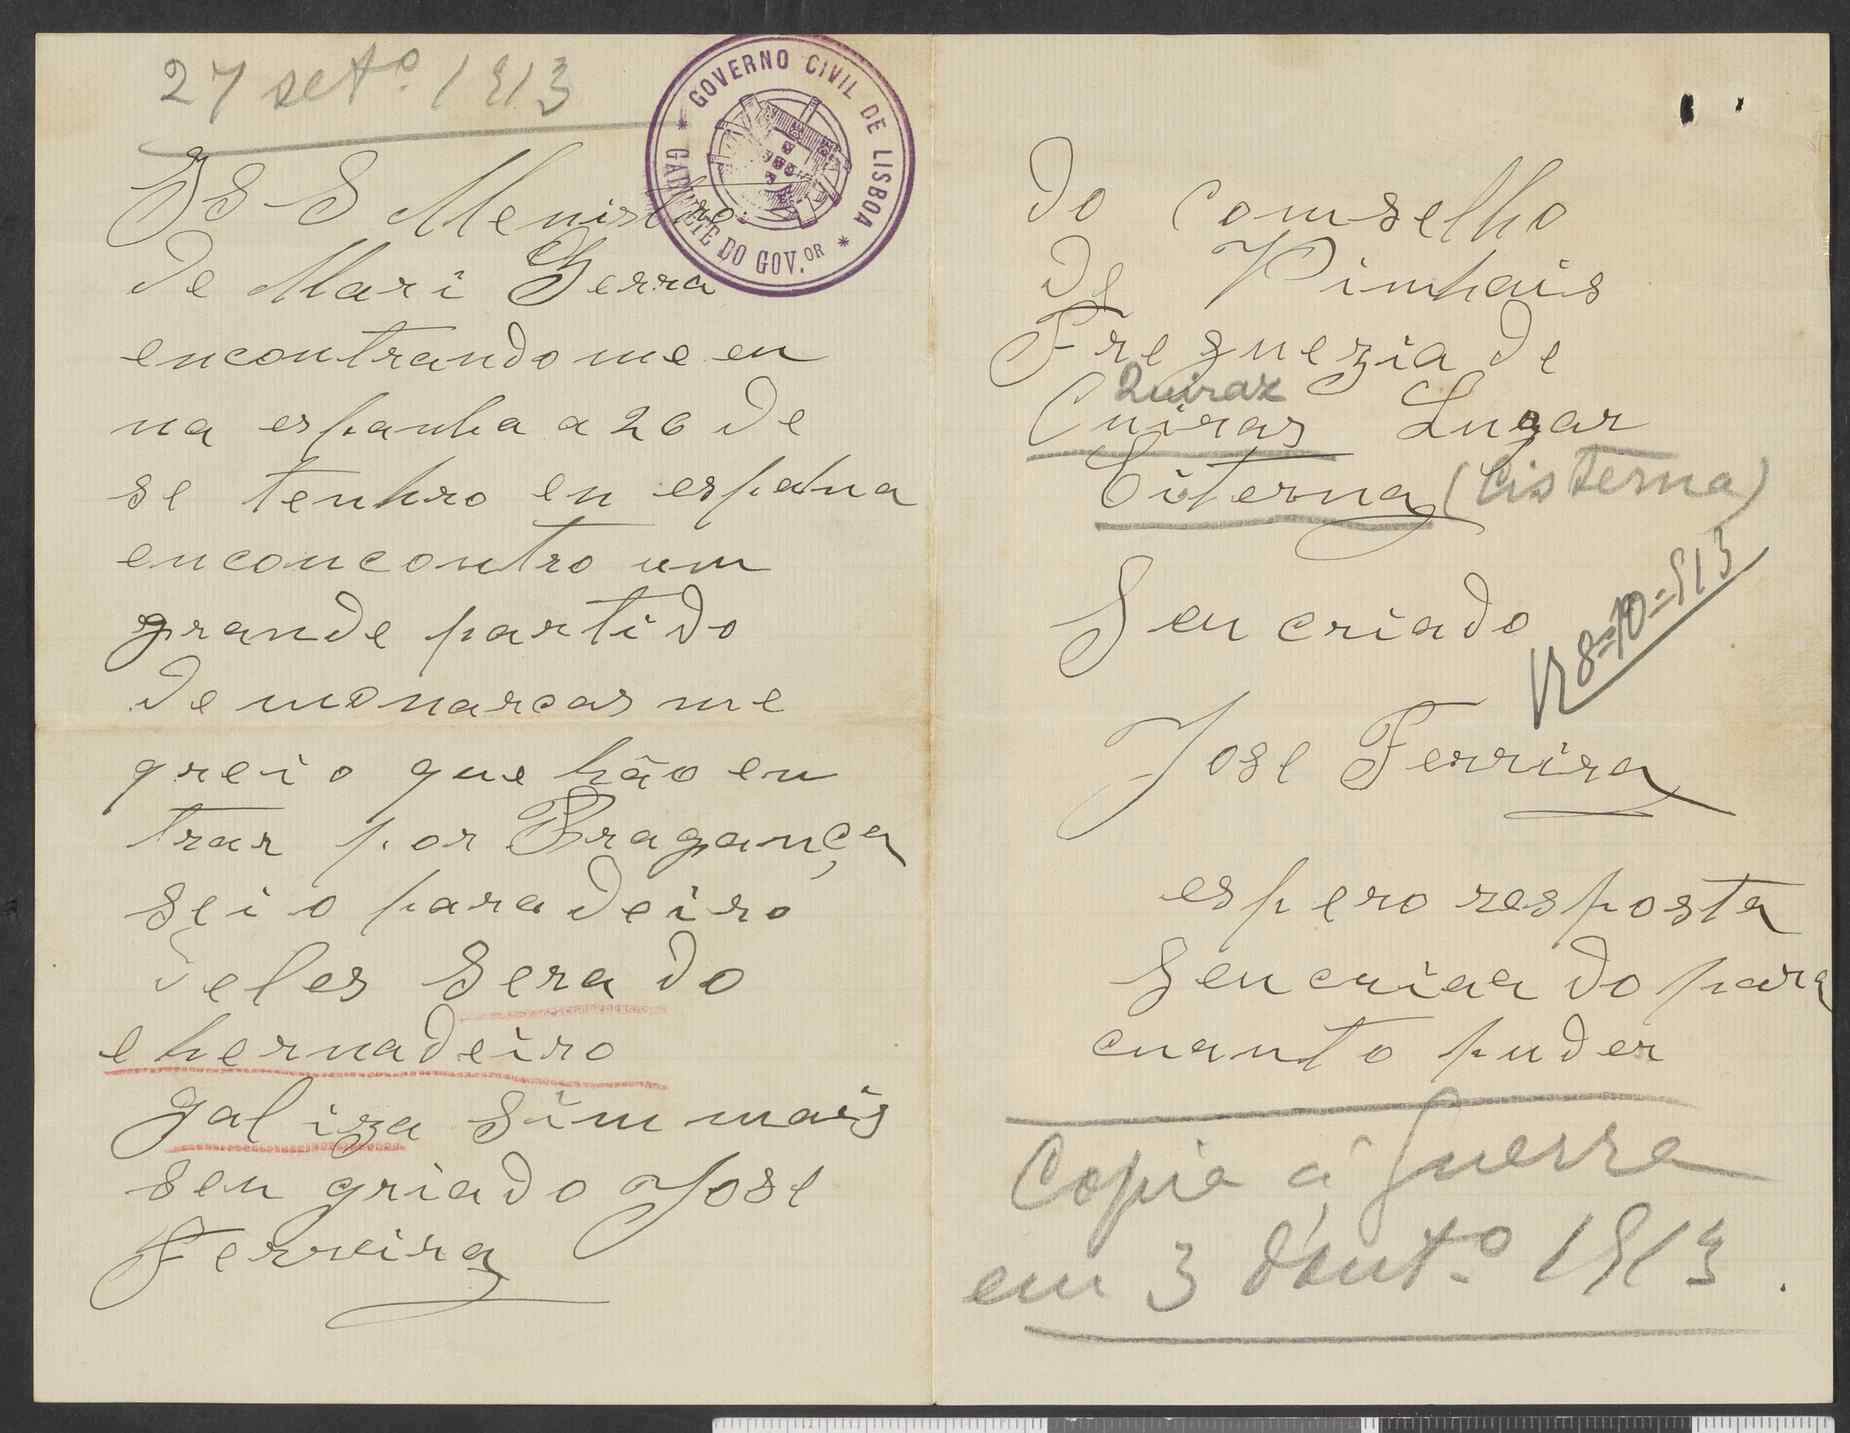 27 setº 1913
GOVERNO CIVIL DE LISBOA
GABINETE DO GOV.OR
S S Menistro
de Mari Gerra
encontrando me en
na espanha a 26 de
se tenbro en espahna
enconcontro um
grande partido
de monarcas me
qreio que hão en
trar por Bragança
sei o paradeiro
deles Sera do
e hernadeiro
galiza sim mais
seu griado Jose
Ferreira
do comselho
de Vimhais
Freguezia de
Quiraz
Cuiras Lugar
Citerna (Cisterna)
Seu criado
R 8-10-913
Jose Ferrira
espero resposta
Seu criaado para
cuanto puder
Copia á Guerra
em 3 d'outº 1913.